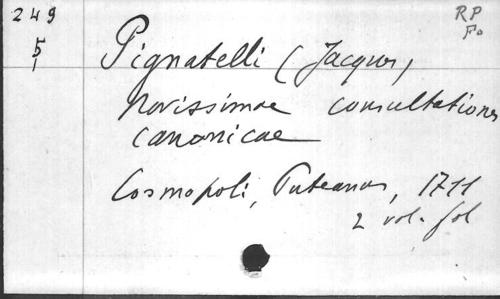 249
5
RP
Fo
Pignatelli (Jacques)
Novissimae consultationes
canonicae
Cosmopoli, Puteanus, 1711
2 vol. fol